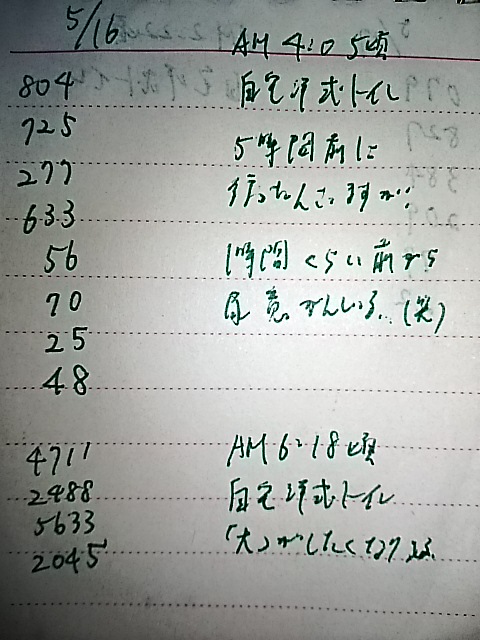 5/16
AM 4:05頃
804 自宅洋式トイレ
725
5時間前に
277
行ったんですが?
633
56 1時間くらい前から
70 尿意が (笑)
25
48
4711 AM 6:18頃
2488 自宅洋式トイレ
5633
2045 「大」がしたくなり